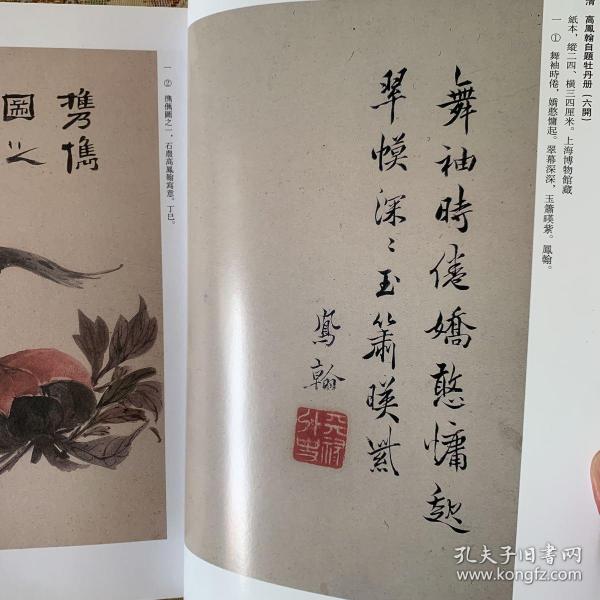 清　高鳳翰自題牡丹册（六開）
紙本，縱二四、橫三四厘米。上海博物館藏
一　①　舞袖時倦，嬌憨慵起。翠幕深深，玉簫暎紫。鳳翰。
舞袖時倦嬌憨慵起
翠幙深〻玉簫暎紫
鳳翰
一　②　㩦儁圖之一，石農高鳳翰寫意。丁巳。
㩦儁
圖之
孔夫子旧书网
www.kongfz.com